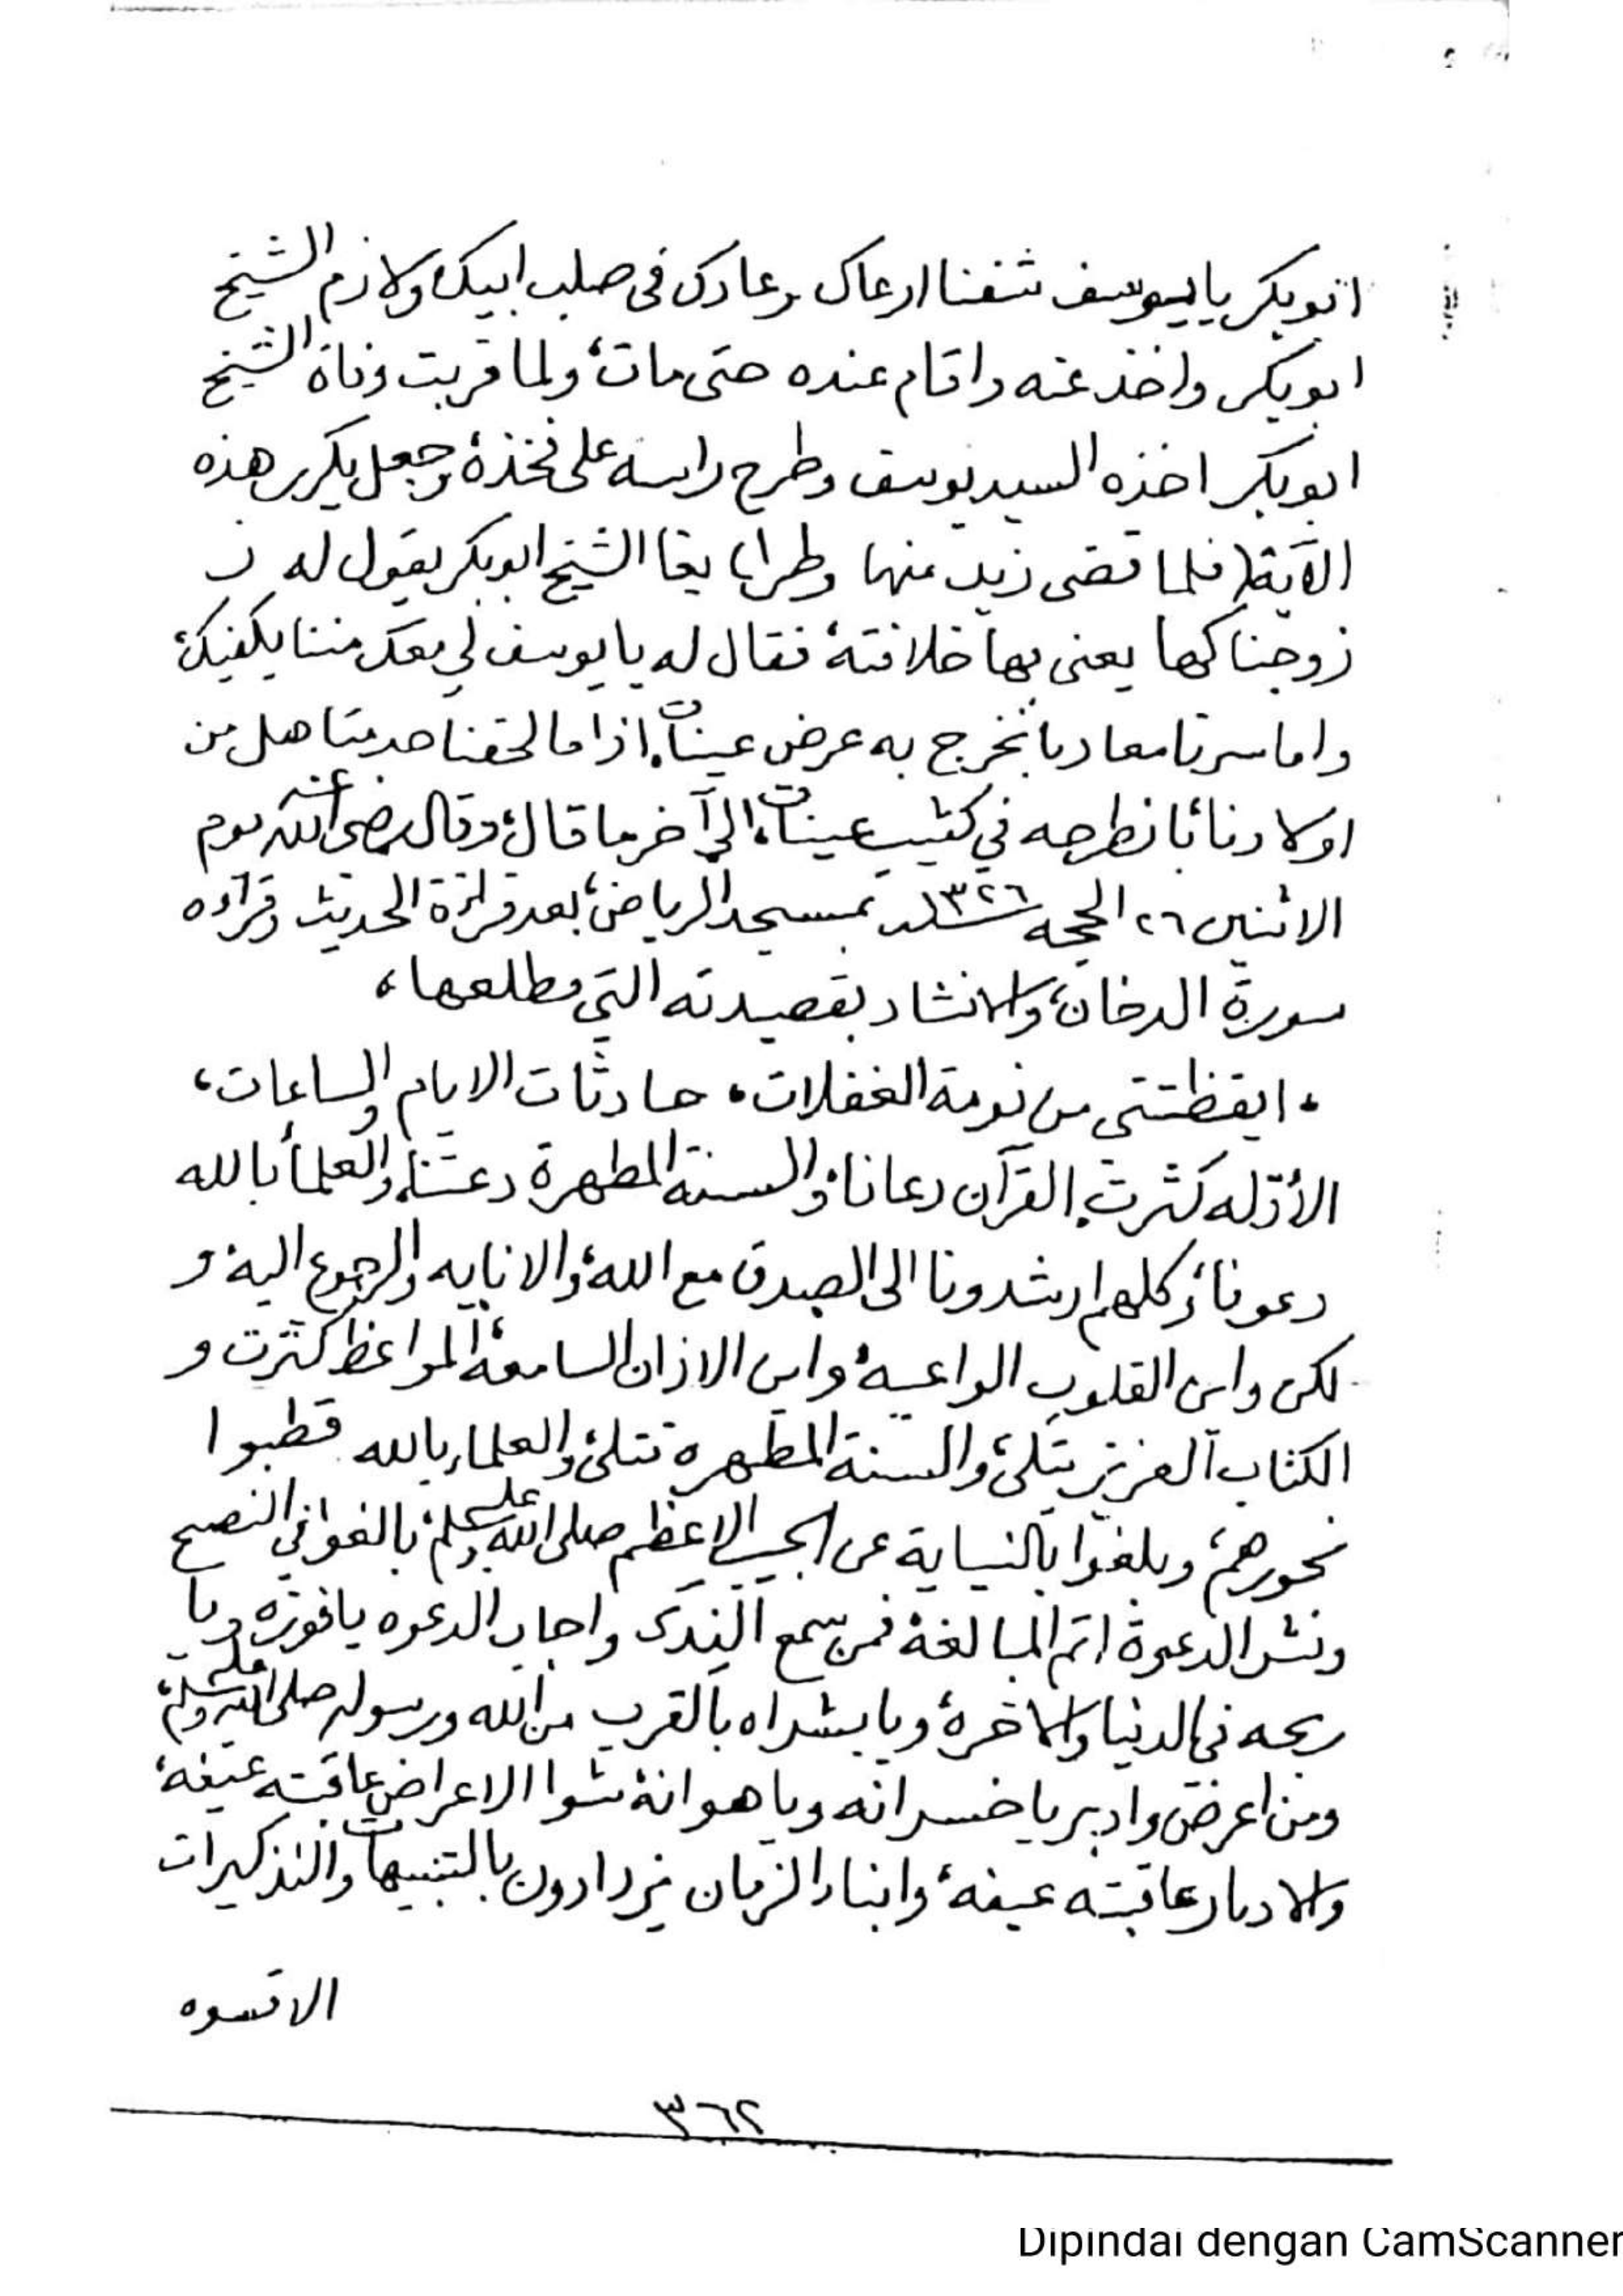 ابوبكر يا يوسف شفنا ارعاك وعادك في صلب ابيك، ولازم الشيخ
ابوبكر واخذ عنه واقام عنده حتى مات، ولما قربت وفاة الشيخ
ابوبكر اخذه السيد يوسف وطرح راسه على فخذه، وجعل يكرر هذه
الآية( فلما قضى زيد منها وطرا) بغا الشيخ ابوبكر يقول له
زوجناكها يعني بها خلافته، فقال له يا يوسف لي معك مننا يكفيك،
واما سرنا معاد با نخرج به عرض عينات، اذا ما لحقنا حد متاهل من
اولادنا با نطرحه في كثيب عينات، الى آخر ما قال، وقال رضي الله عنه يوم
الاثنين ٢٦ الحجه سنة ١٣٢٦ بمسجد الرياض، بعد قراءة الحديث وقراءه
سورة الدخان، والانشاد بقصيدته التي مطلعها،
، ايقظتني من نومة الغفلات ، حادثات الايام والساعات،
الأدله كثرت، القرآن دعانا، والسنة المطهرة دعتنا، والعلمأ بالله
دعونا، وكلهم ارشدونا الى الصدق مع الله، والانابه والرجوع اليه، و
لكن واين القلوب الواعيه، واين الاذان السامعة، المواعظ كثرت و
الكتاب العزيز يتلى، والسنة المطهره تتلى، والعلماء بالله قطبوا
نحورهم، وبلغوا بالنيابة عن الحبيب الاعظم صلى الله عليه وسلم، بالغوا في النصح
ونشر الدعوة اتم المبالغة، فمن سمع الندى واجاب الدعوه يا فوزه ويا
ربحه في الدنيا والاخرة، ويا بشراه بالقرب من الله ورسوله صلى الله عليه وسلم،
ومن اعرض وادبر يا خسرانه ويا هوانة، شوا الاعراض عاقبته عيفه،
والادبار عاقبته عيفه، وابناء الزمان يزدادون بالتنبيهات والتذكيرات
الا قسوه
٣٦٢
Dipindai dengan CamScanner